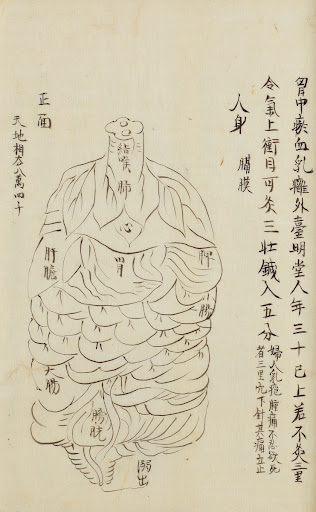 胃中瘀血乳癰外臺明堂人年三十已上若不灸三里
令氣上衝目可灸三壯鍼入五分
婦人乳癰腫痛不忍欲死
者三里穴下針其痛立止
人身
臈膜
正面
天地相去八萬四千
結喉
肺
胃
脾
肝膽
腸
大腸
膀胱
溺出